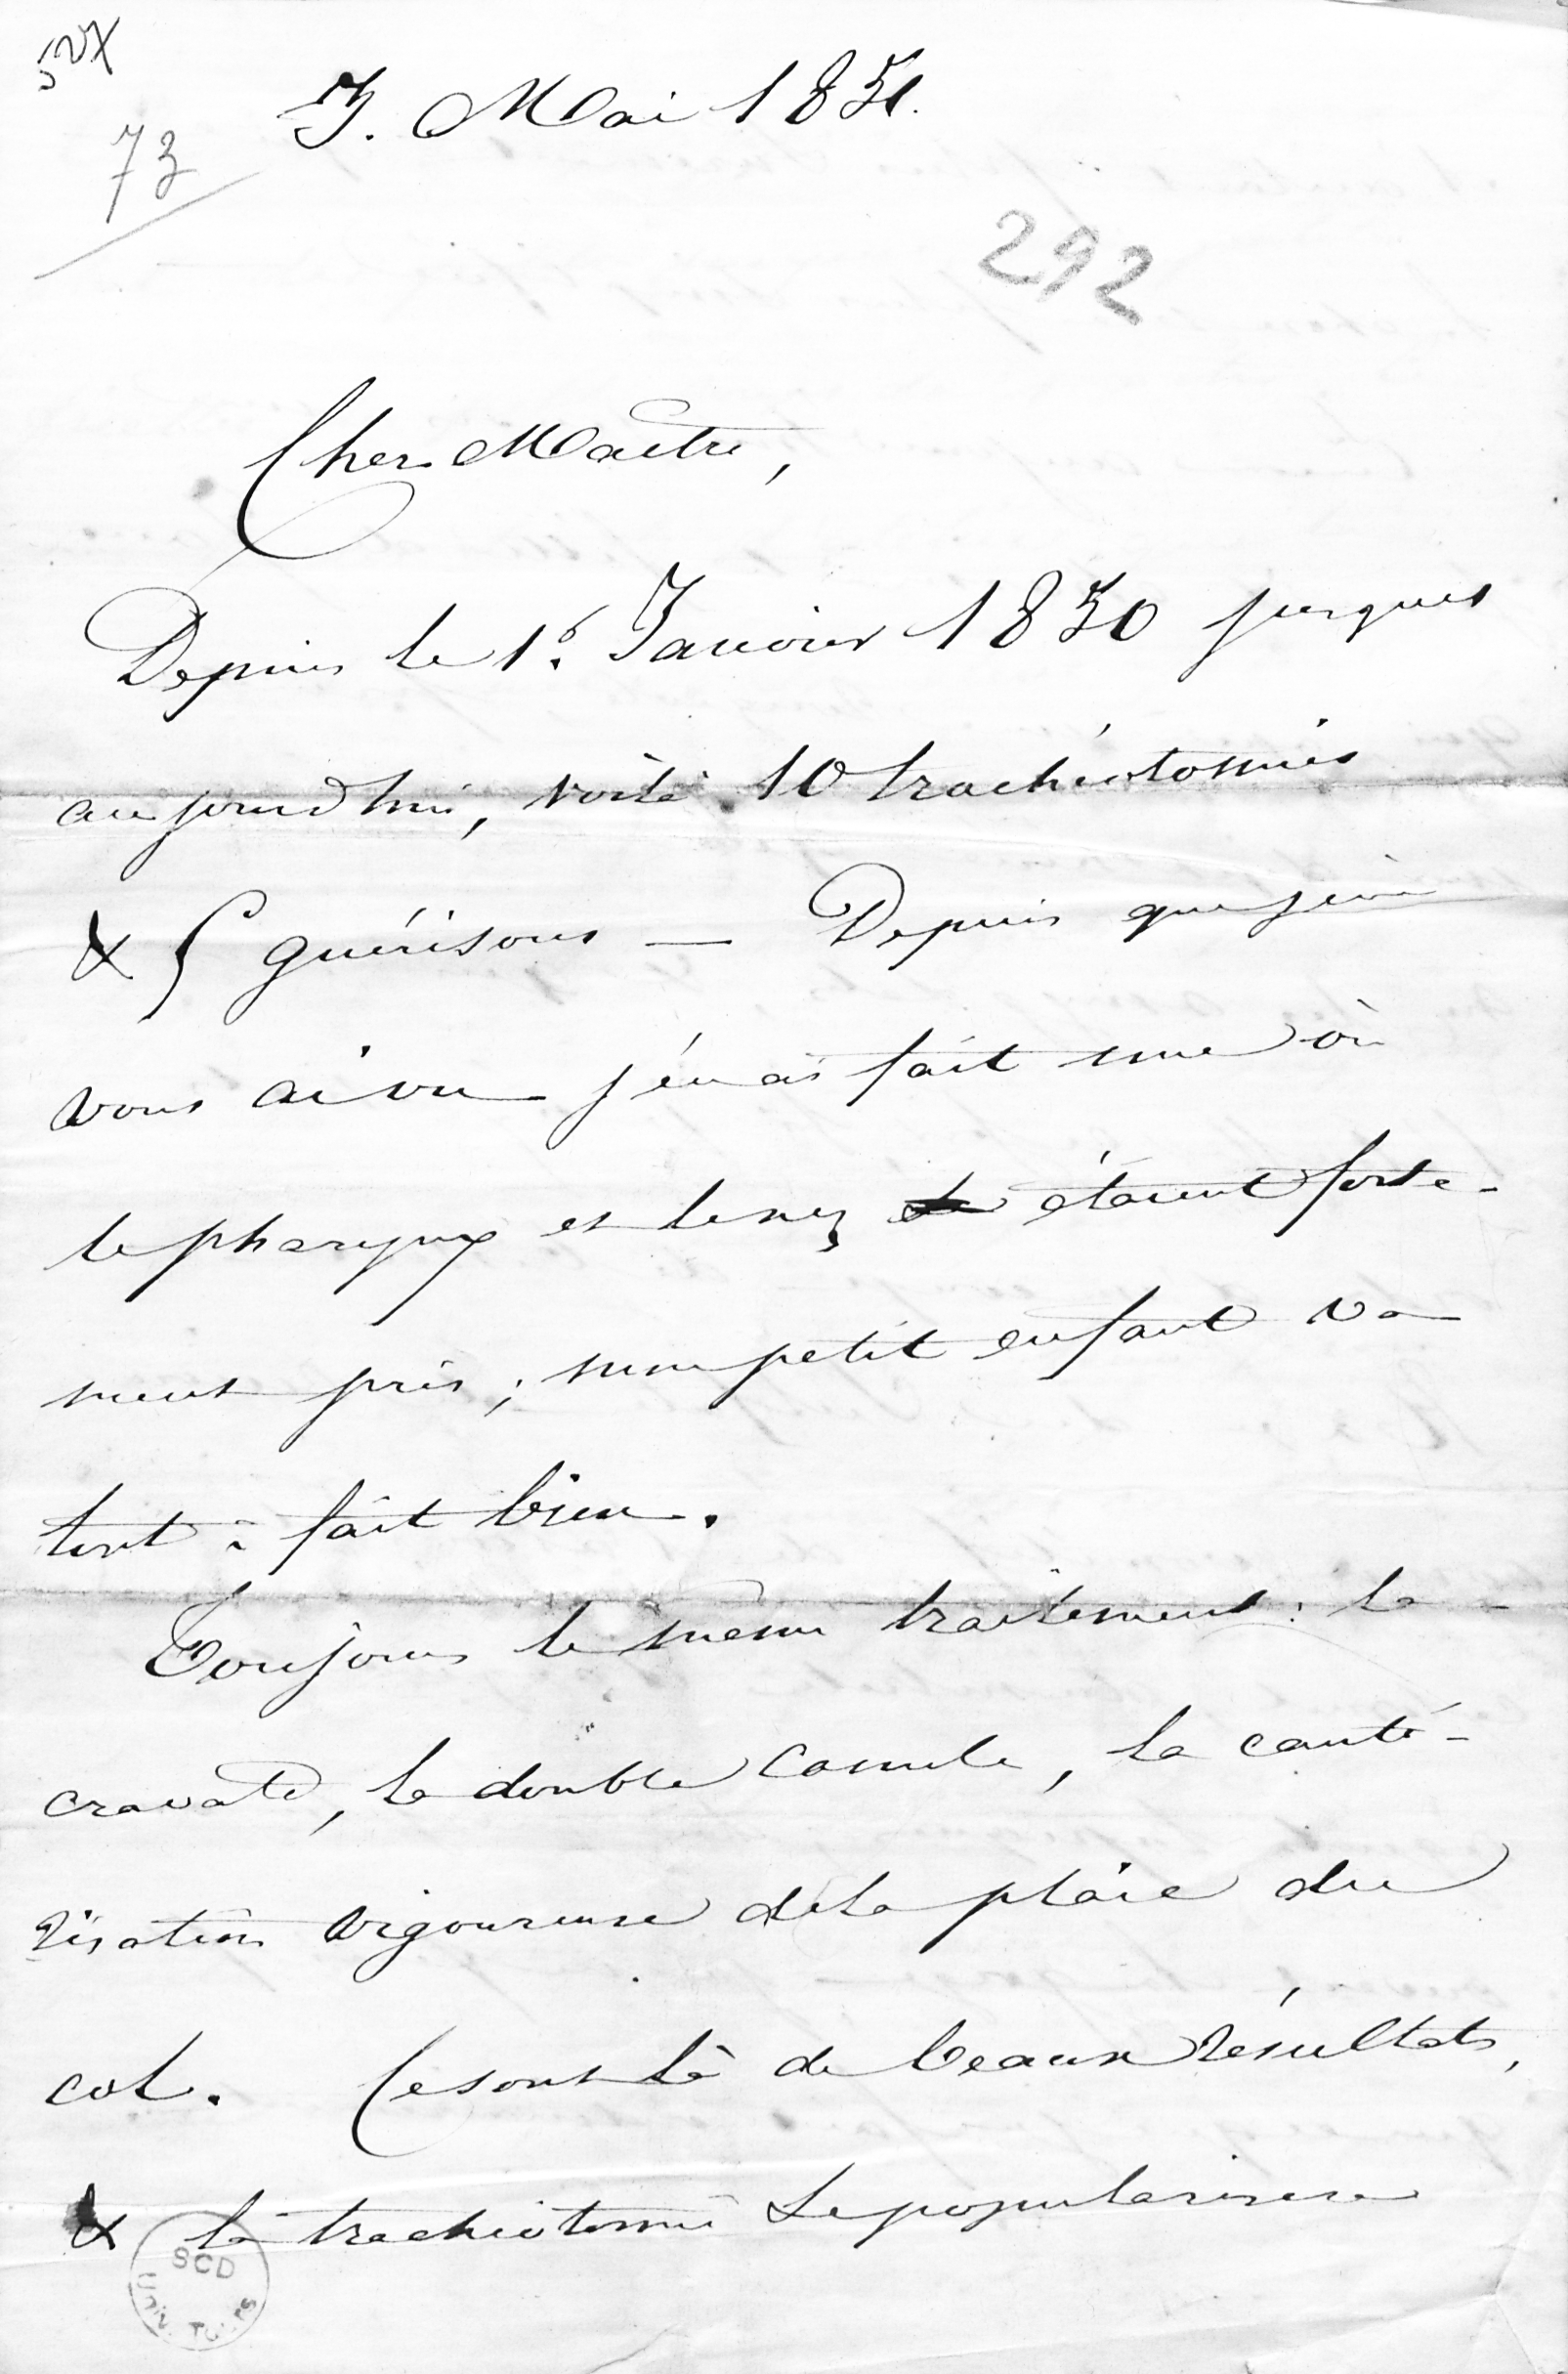 73
7. Mai 1851.
292
Cher Maître,
Depuis le 1er Janvier 1850 jusques
aujourd'hui, voilà 10 trachéotomies
& 5 guérisons — Depuis que je
vous ai vu j'en ai fait une où
le pharynx et le nez étaient forte-
ment pris ; mon petit enfant va
tout à fait bien.
Toujours le même traitement : la
cravate, la double canule, la cauté-
risation vigoureuse de la plaie du
col. Ce sont là de beaux résultats,
& la trachéotomie se popularisera
SCD
UNIV. TOURS